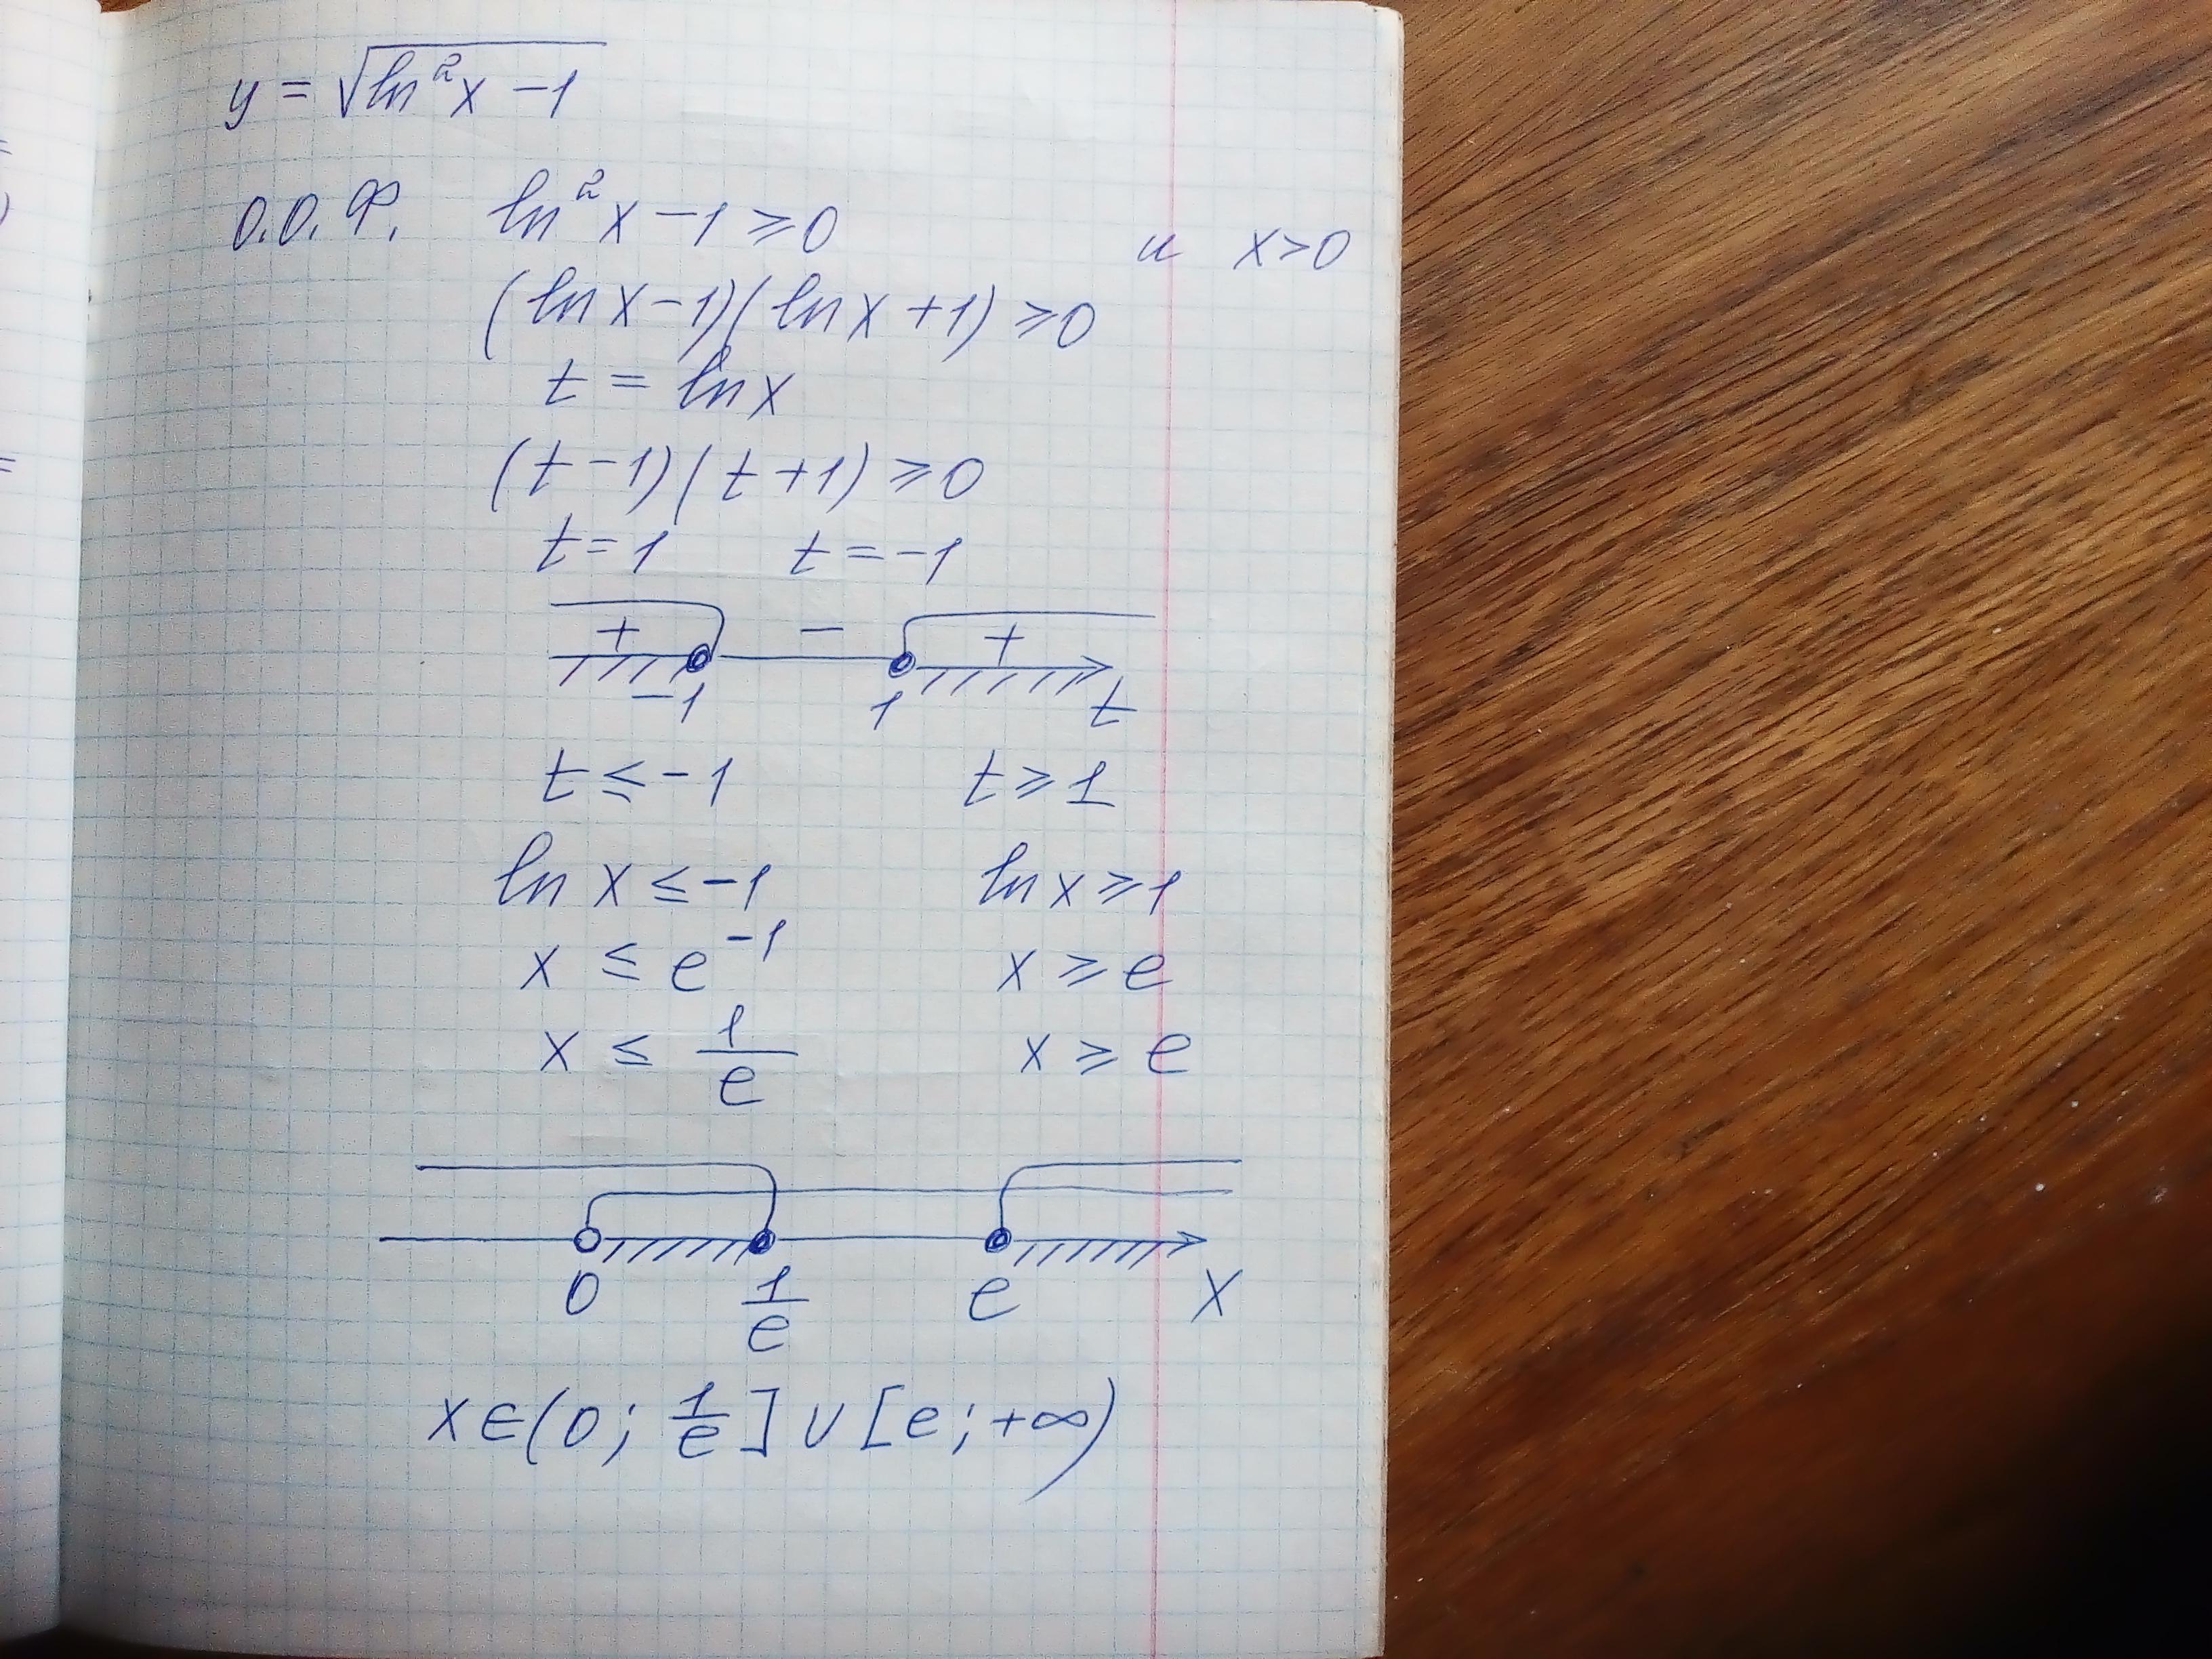 y = √(ln²x − 1)
О.О.Ф. ln²x − 1 ⩾ 0 и x > 0
(ln x − 1)(ln x + 1) ⩾ 0
t = ln x
(t − 1)(t + 1) ⩾ 0
t = 1 t = −1
+ − +
−1 1 t
t ≤ −1 t ⩾ 1
ln x ≤ −1 ln x ⩾ 1
x ≤ e⁻¹ x ⩾ e
x ≤ 1/e x ⩾ e
0 1/e e x
x ∈ (0; 1/e] ∪ [e; +∞)